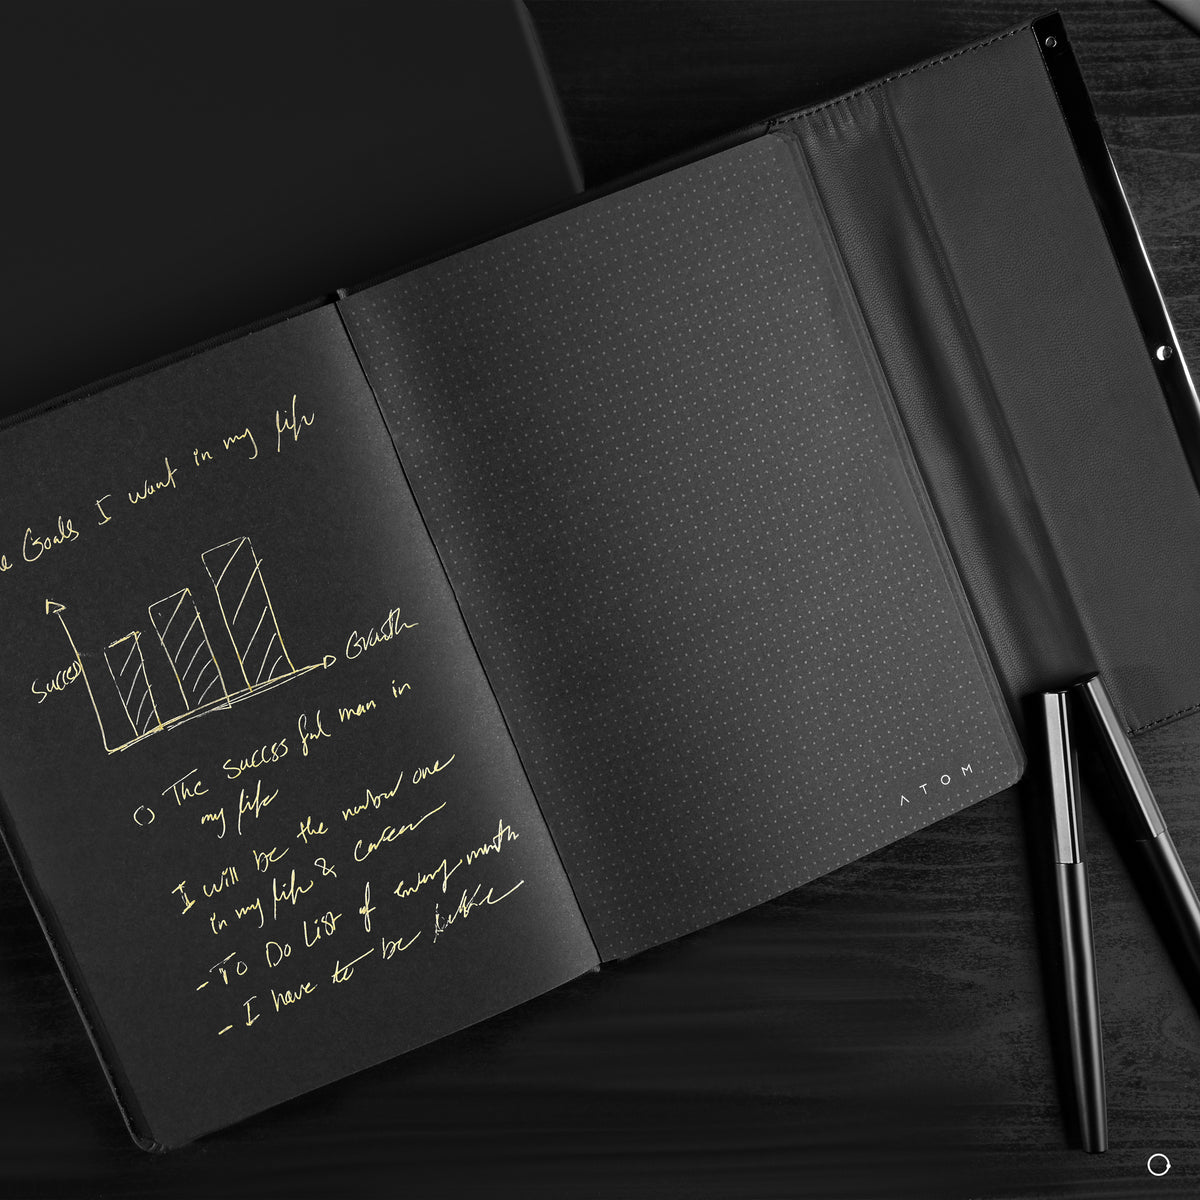 Goals I want in my life
Success
Growth
The successful man in
my life
I will be the number one
in my life & career
- To Do List of every month
- I have to be
ATOM